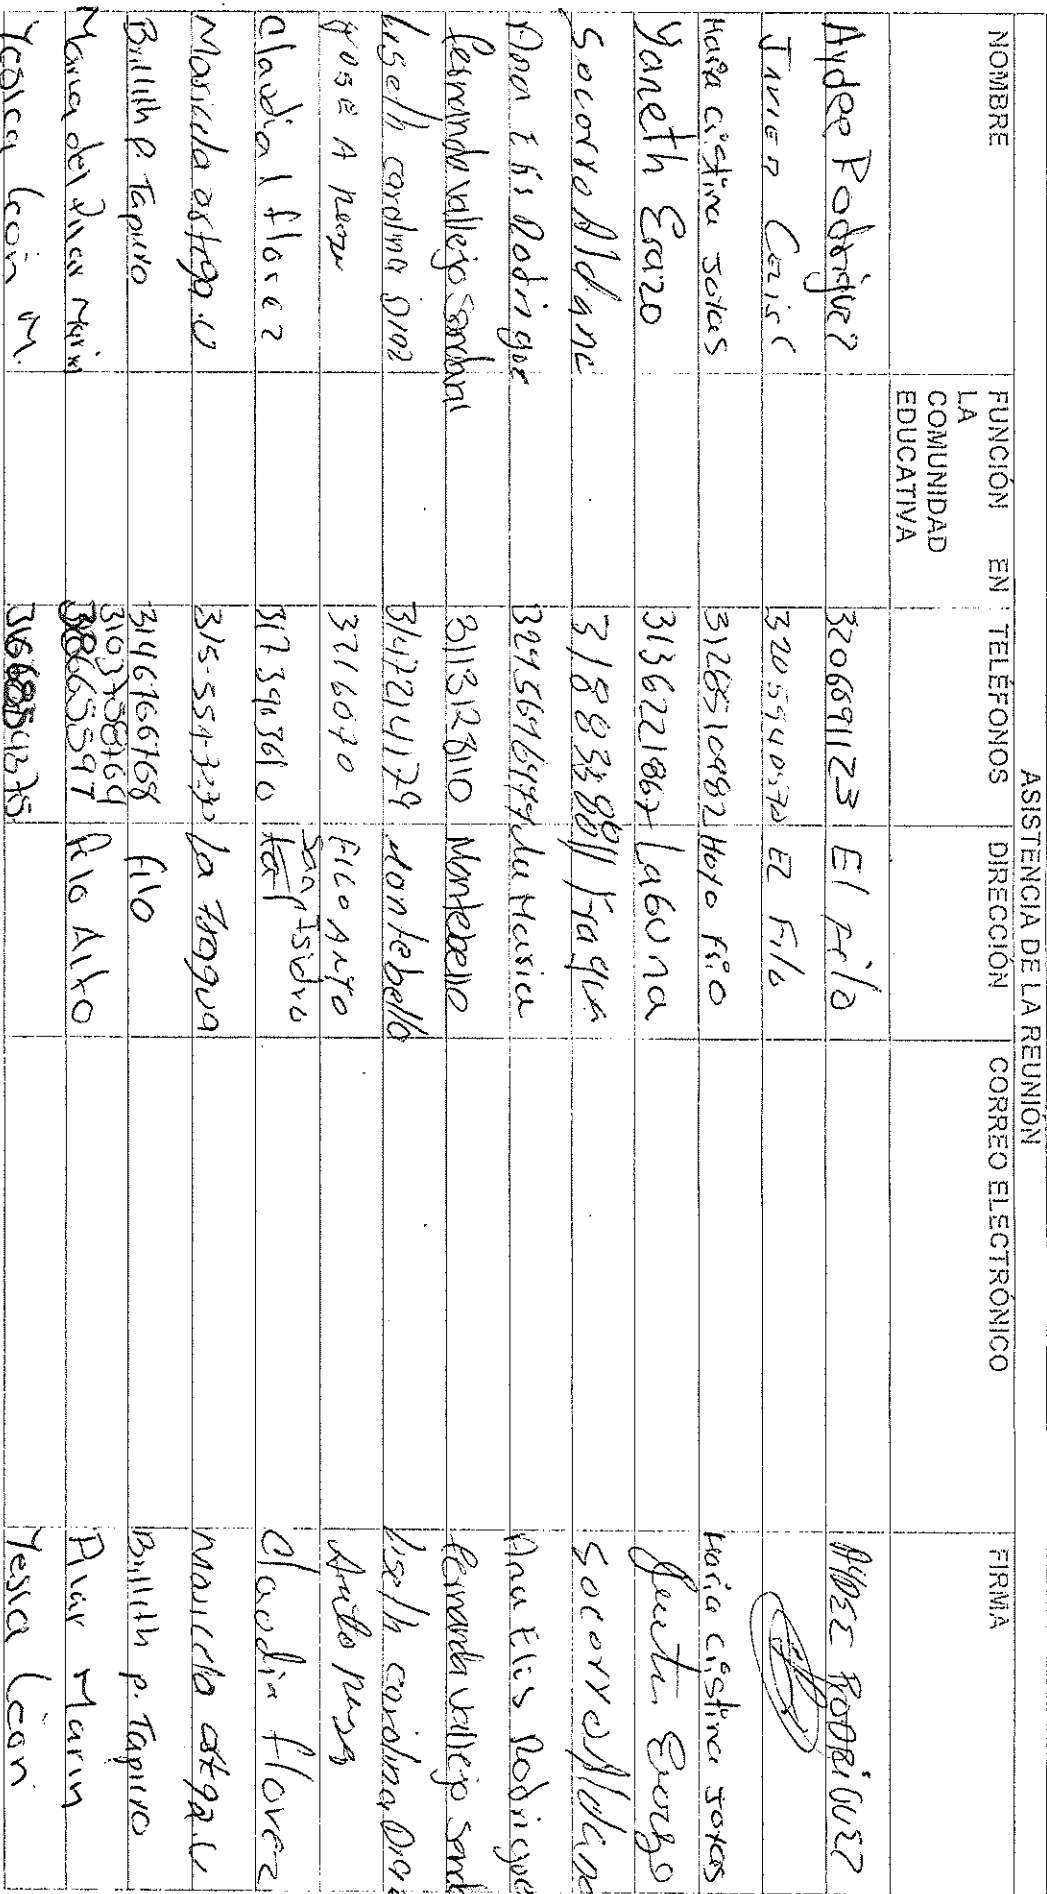 ASISTENCIA DE LA REUNIÓN
NOMBRE FUNCIÓN EN LA COMUNIDAD EDUCATIVA TELÉFONOS DIRECCIÓN CORREO ELECTRÓNICO FIRMA
Aydee Rodriguez 3206691123 El Filo AYDEE RODRIGUEZ
3205940570 El Filo
Maria Cristina Joyas 3126510982 Hoyo frio Maria Cristina Joyas
Yaneth Erazo 3136221867 Laguna Erazo
Socorro Aldana Fragua Socorro Aldana
Ana Elis Rodrigue Maria Ana Elis Rodrigue
fernanda vallejo Sandoval 3113123110 Montebello fernanda vallejo Sand
Liseth carolina Diaz 3147214179 Montebello Liseth carolina Diaz
José A 3216070 Filo Alto
Claudia l florez 3173903610 San Isidro Claudia florez
Maricela ortega.U 315-554-3230 la fragua Maricela ortega.U
Billith p. Tapiero 3146766768 filo Billith p. Tapiero
Maria del Pilar Marin 3103758769 Filo Alto Pilar Marin
Yesica León M. Yesica León